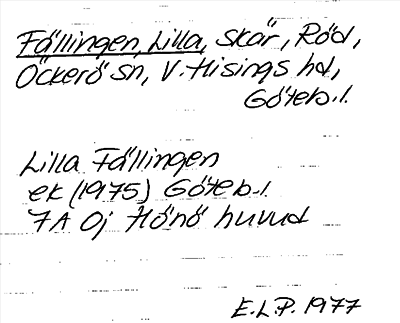 Fällingen, Lilla, skär, Röd,
Öckerö sn, V. Hisings hd,
Göteb. l.
Lilla Fällingen
ek (1975) Göteb. l.
7A Oj Hönö huvud
E.L.P. 1977